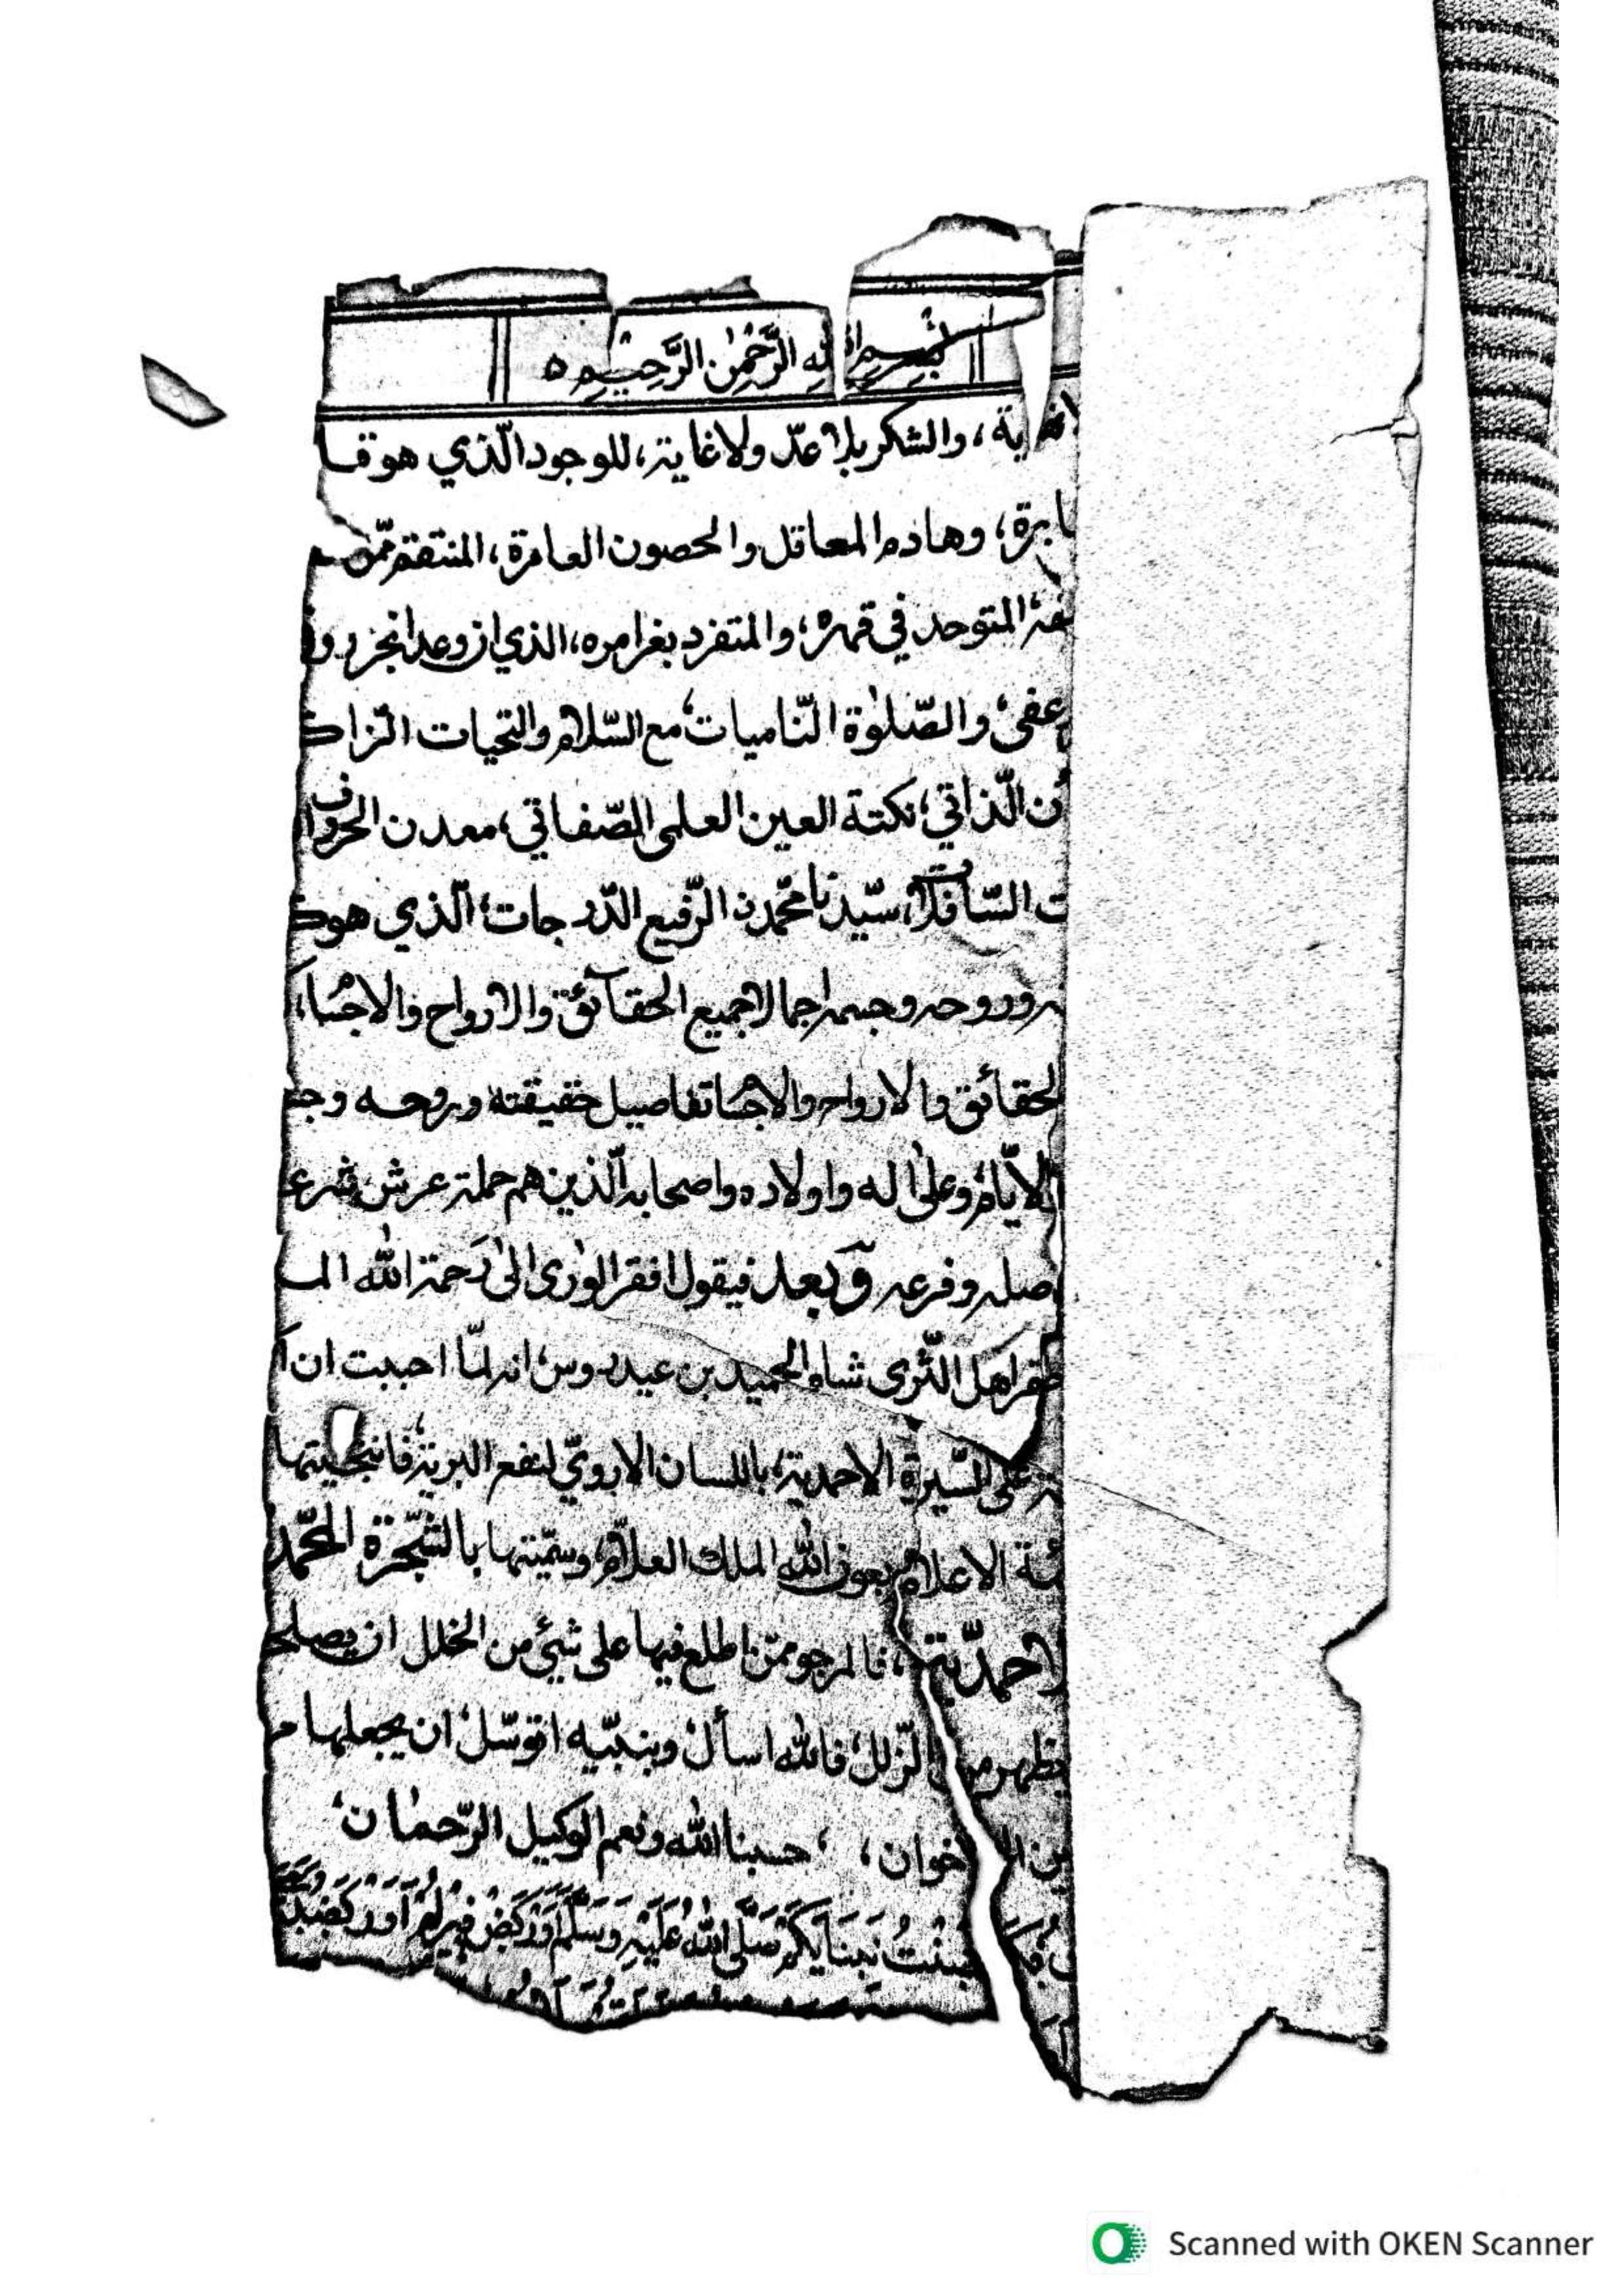 بِسْمِ اللّٰهِ الرَّحْمٰنِ الرَّحِيْمِ
ية، والشكر بلا عدّ ولا غاية، للوجود الّذي هو قا
ابرة، وهادم المعاقل والحصون العامرة، المنتقم ممّن
المتوحد في قهره، والمتفرد بغرامره، الذي ان وعد انجز و
عفى، والصّلوٰة النّاميات، مع السّلام والتحيات الزّاك
ن الّذاتي، نكتة العين العلمي الصّفاتي، معدن الحروف ا
ت السّافلات، سيّدنا محمّدن الرّفيع الدّرجات، الّذي هو ك
وروحه وجسمه اجمالا جميع الحقآئق والارواح والاجسام،
لحقائق والارواح والاجسام تفاصيل حقيقته وروحه وج
الايّام، وعلىٰ اله واولاده واصحابه الّذين هم حملة عرش شرع
صله وفرعه وبعد فيقول افقر الورىٰ الىٰ رحمة اللّٰه الم
اهل الثّرى شاه الحميد بن عيدروس، انه لمّا احببت ان ا
على السّيرة الاحمدية، باللسان الاروي لنفع البرية، فانتخبتها
ئمة الاعلام، بعون اللّٰه الملك العلّام، وسمّيتها بالشّجرة المحمّد
لاحمدّية، فالمرجو ممّن اطلع فيها على شيئ من الخلل ان يصلح
يظهر من الزّلل، فاللّٰه اسأل، وبنبيّه اتوسّل، ان يجعلها م
ين الاخوان، حسبنا اللّٰه ونعم الوكيل الرّحمٰن،
صَلَّى اللّٰهُ عَلَيْهِ وَسَلَّمَ
Scanned with OKEN Scanner